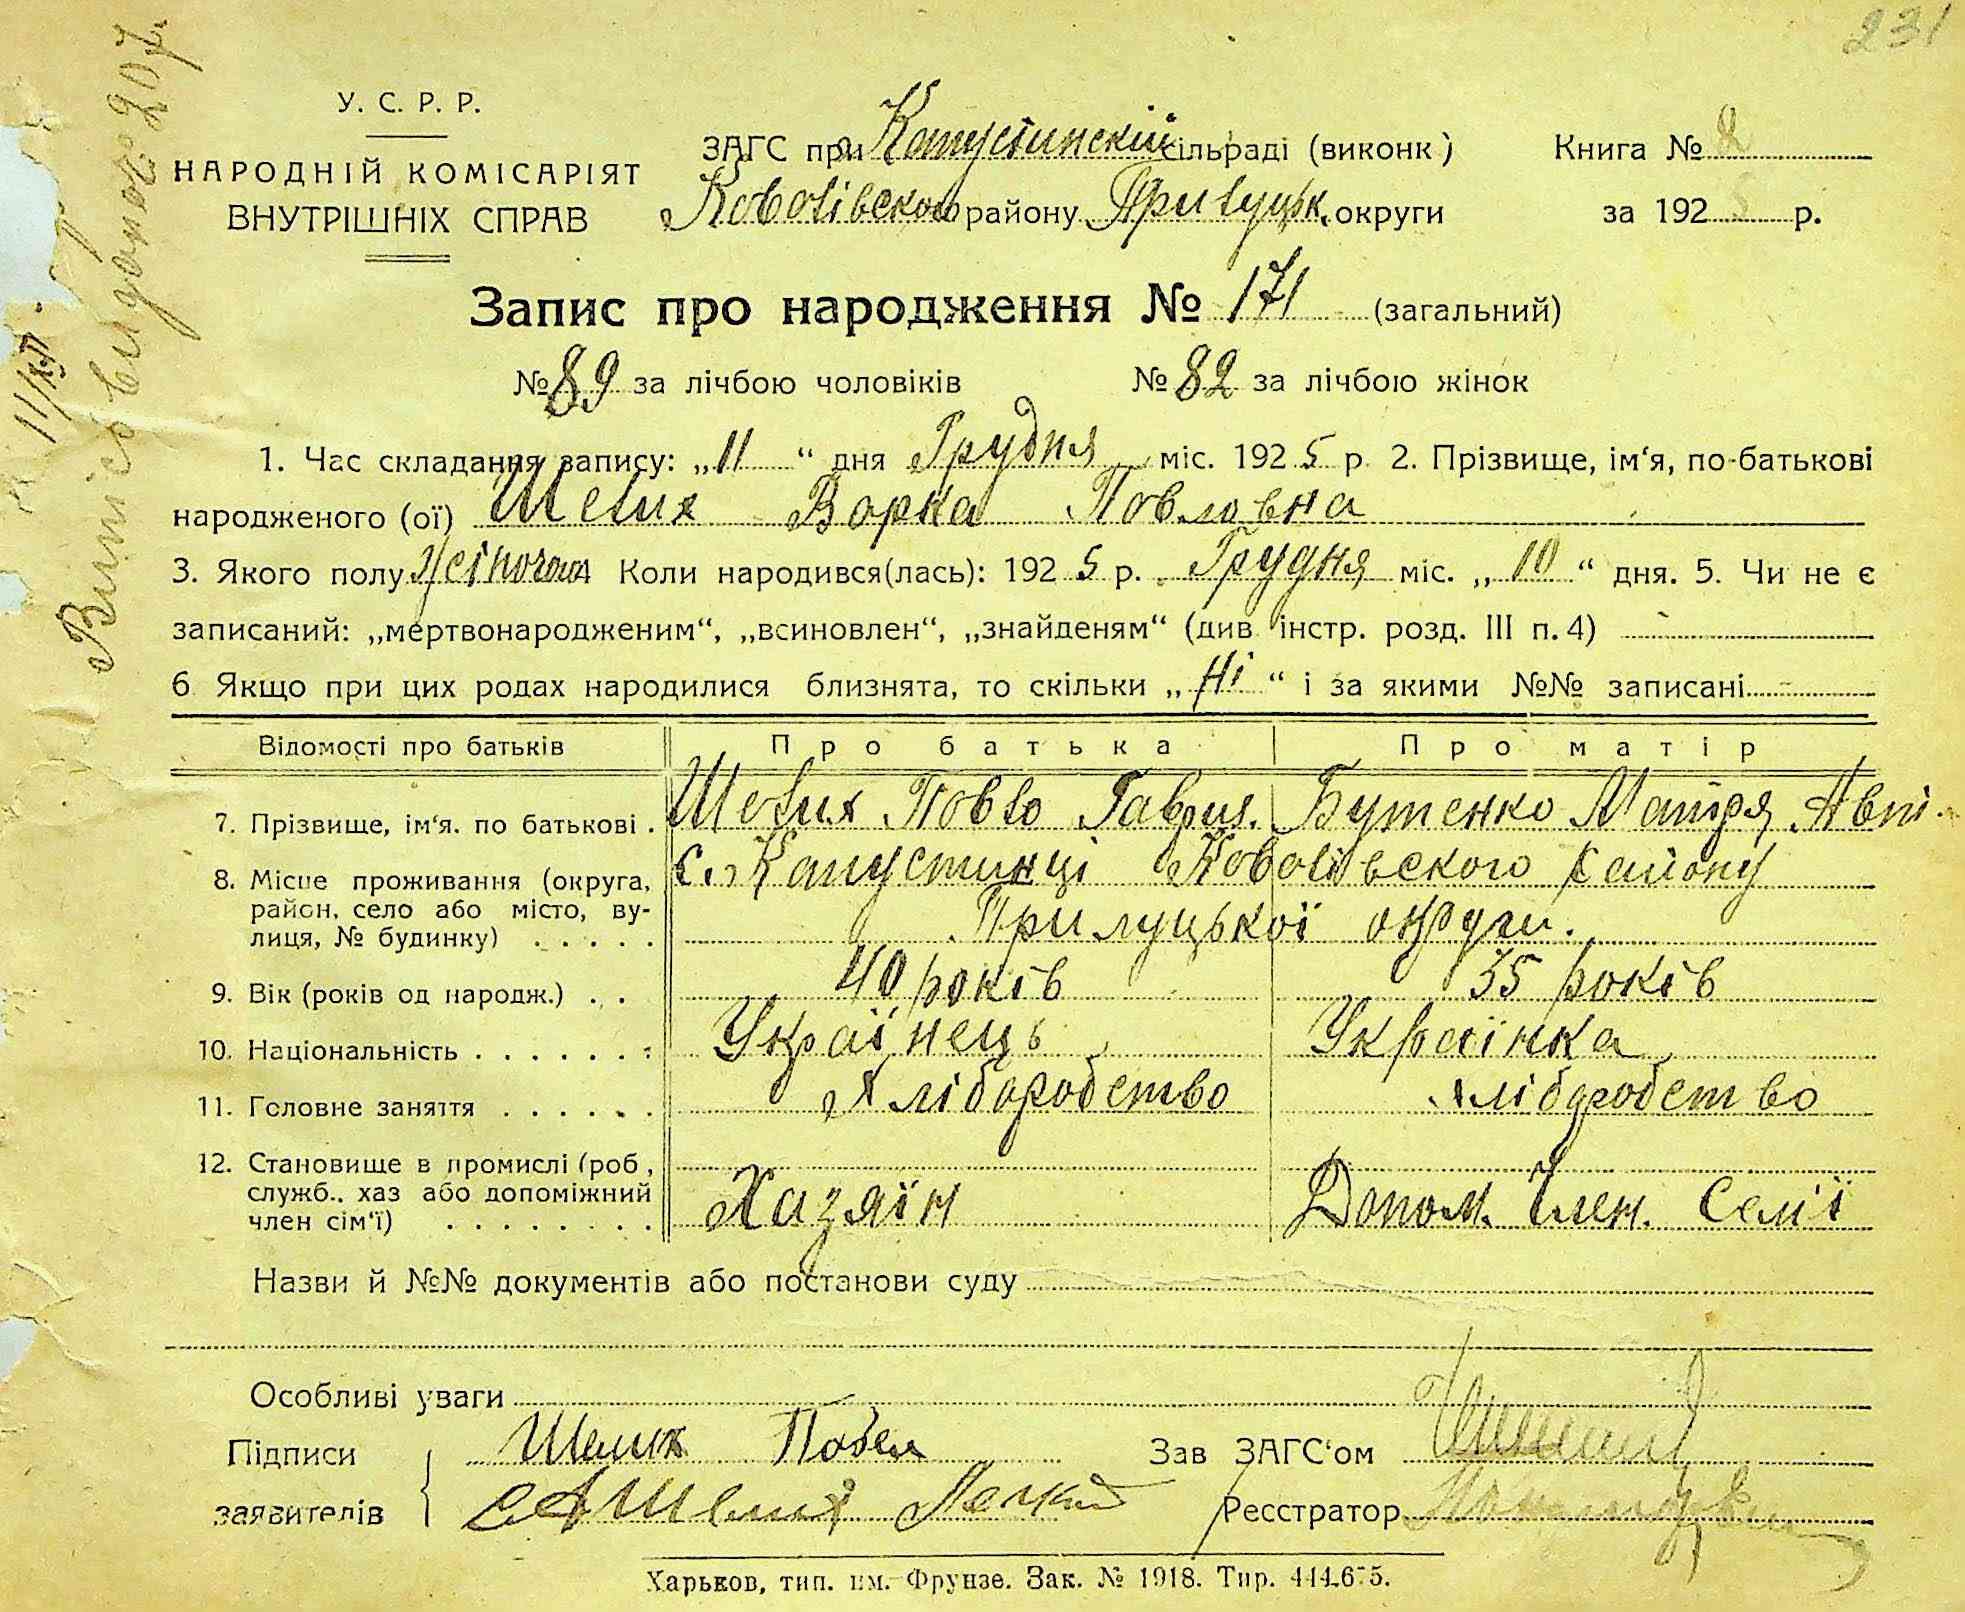 231
У. С. Р. Р.
НАРОДНІЙ КОМІСАРІЯТ
ВНУТРІШНІХ СПРАВ
ЗАГС при Капустинскій сільраді (виконк)
Ковалівского району Прилуцьк. округи
Книга № 2
за 1925 р.
Витяг видано № 207.
11/XII
Запис про народження № 171 (загальний)
№ 89 за лічбою чоловіків № 82 за лічбою жінок
1. Час складання запису: „11“ дня Грудня міс. 1925 р 2. Прізвище, ім‘я, по-батькові
народженого (ої) Шелих Варка Повловна
3. Якого полу Жіночого Коли народився(лась): 1925 р. Грудня міс. „10“ дня. 5. Чи не є
записаний: „мертвонародженим“, „всиновлен“, „знайденям“ (див інстр. розд. III п. 4) -
6 Якщо при цих родах народилися близнята, то скільки „Ні“ і за якими №№ записані -
Відомості про батьків Про батька Про матір
7. Прізвище, ім‘я. по батькові . Шелих Повло Гаврил. Бутенко Мотря Авт.
8. Місце проживання (округа, район, село або місто, ву-
лиця, № будинку) . . . . . с. Капустинці Ковалівского району
Прилуцької округи.
9. Вік (років од народж.) . . 40 років 35 років
10. Національність . . . . . . . Українець Українка
11. Головне заняття . . . . . . Хліборобство Хліборобство
12. Становище в промислі (роб,
служб., хаз або допоміжний
член сім‘ї) . . . . . . . . Хазяїн Допом. Член. Семї
Назви й №№ документів або постанови суду
Особливі уваги
Підписи
заявителів
Шелих Повел
Шелих
Зав ЗАГС‘ом
Реєстратор
Харьков, тип. им. Фрунзе. Зак. № 1918. Тир. 444.675.